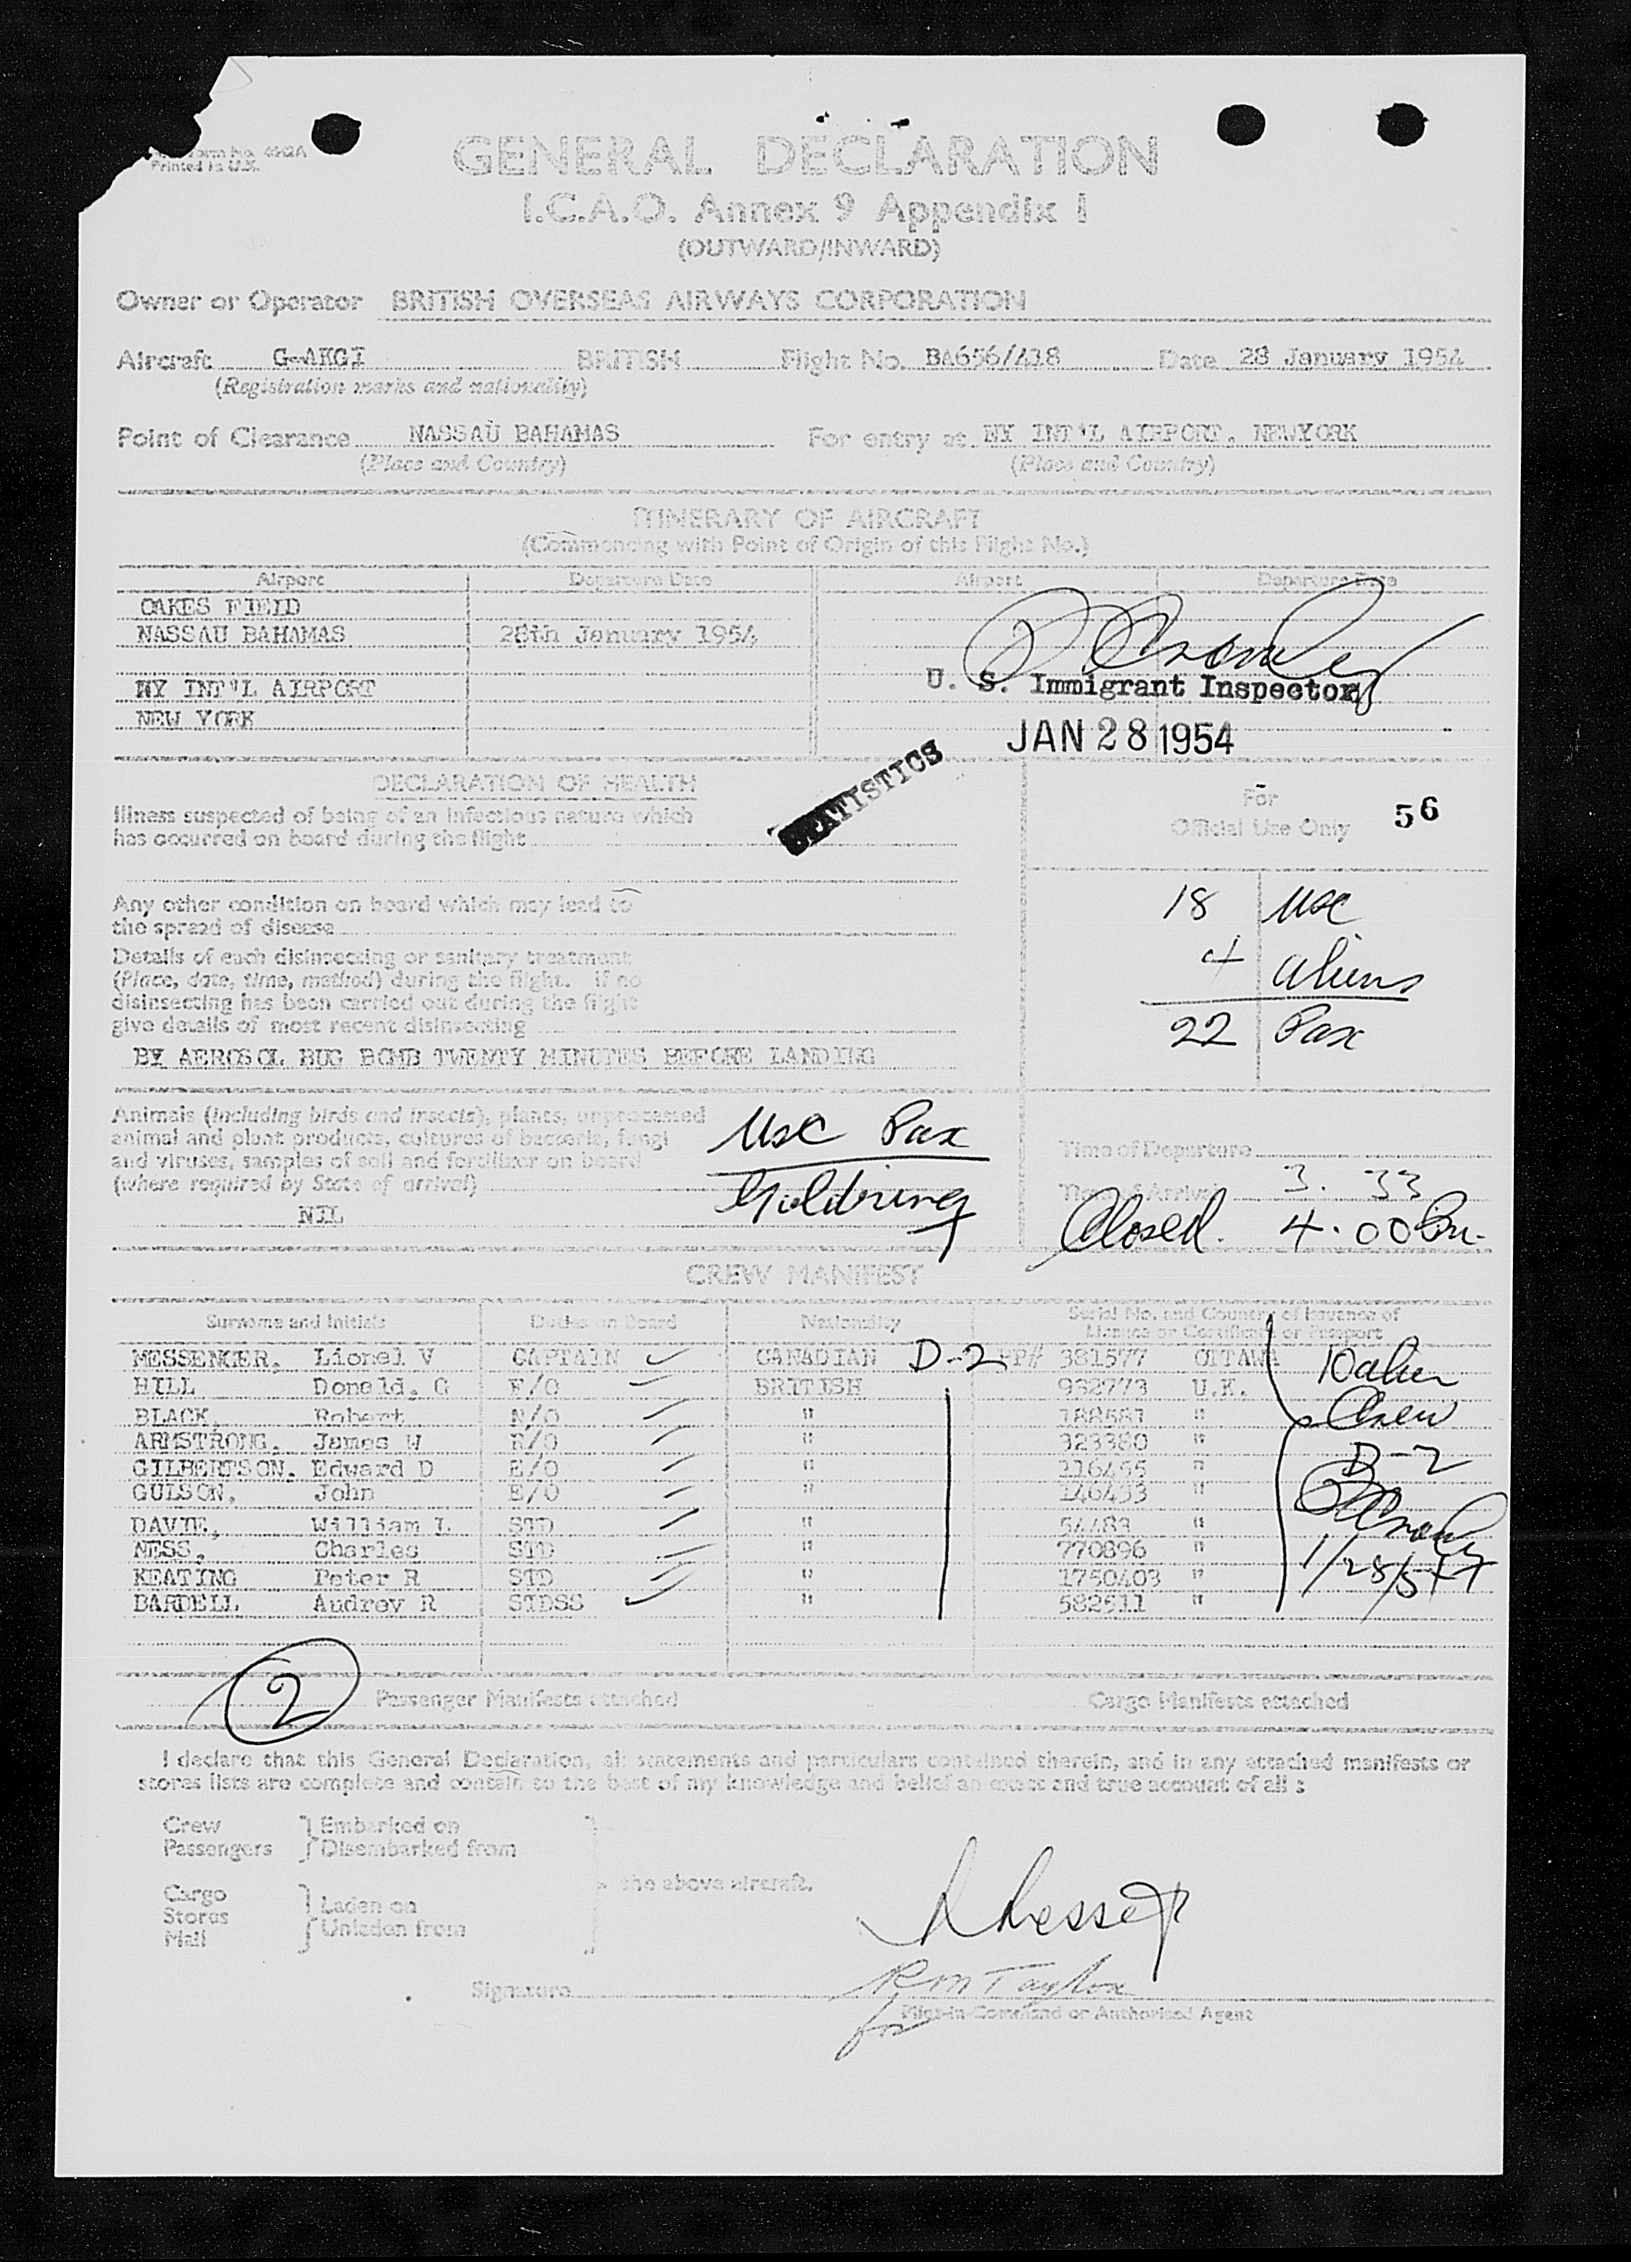 Form No. 692A
Printed in U.K.
GENERAL DECLARATION
I.C.A.O. Annex 9 Appendix I
(OUTWARD/INWARD)
Owner or Operator BRITISH OVERSEAS AIRWAYS CORPORATION
Aircraft G-AKGI BRITISH Flight No. BA656/418 Date 28 January 1954
(Registration marks and nationality)
Point of Clearance NASSAU BAHAMAS For entry at NY INT'L AIRPORT. NEWYORK
(Place and Country) (Place and Country)
ITINERARY OF AIRCRAFT
(Commencing with Point of Origin of this Flight No.)
Airport Departure Date Airport Departure Date
OAKES FIELD
NASSAU BAHAMAS 28th January 1954
U. S. Immigrant Inspector
NY INT'L AIRPORT
NEW YORK
JAN 28 1954
STATISTICS
DECLARATION OF HEALTH
Illness suspected of being of an infectious nature which
has occurred on board during the flight
For
Official Use Only 56
Any other condition on board which may lead to
the spread of disease
18 USC
4 aliens
22 Pax
Details of each disinsecting or sanitary treatment
(Place, date, time, method) during the flight. If no
disinsecting has been carried out during the flight
give details of most recent disinsecting
BY AEROSOL BUG BOMB TWENTY MINUTES BEFORE LANDING
Animals (including birds and insects), plants, unprocessed
animal and plant products, cultures of bacteria, fungi
and viruses, samples of soil and fertilizer on board
(where required by State of arrival)
NIL
USC Pax
Goldring
Time of Departure
Time of Arrival 3. 33
Closed. 4.00 Pm.
CREW MANIFEST
Surname and Initials Duties on Board Nationality Serial No. and Country of Issuance of
Licence or Certificate or Passport
MESSENGER, Lionel V CAPTAIN CANADIAN D-2 PP# 381577 OTTAWA
HILL Donald. G F/O BRITISH 932773 U.K.
BLACK, Robert N/O " 188581 "
ARMSTRONG, James W R/O " 323380 "
GILBERTSON. Edward D E/O " 116455 "
GULSON, John E/O " 146433 "
DAVIE, William L STD " 54483 "
NESS, Charles STD " 770896 "
KEATING Peter R STD " 1750403 "
BARDELL Audrey R STDSS " 582511 "
10 alien
Crew
D-2
1/28/54
2 Passenger Manifests attached Cargo Manifests attached
I declare that this General Declaration, all statements and particulars contained therein, and in any attached manifests or
stores lists are complete and contain to the best of my knowledge and belief an exact and true account of all :
Crew Embarked on
Passengers Disembarked from
the above aircraft.
Cargo
Stores Laden on
Mail Unladen from
Signature R M Taylor
for Pilot-in-Command or Authorised Agent